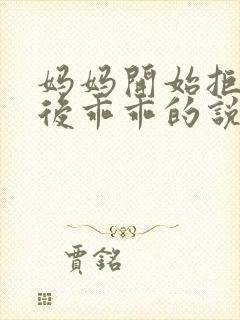 妈妈開始拒
後乖乖的說
賈銘